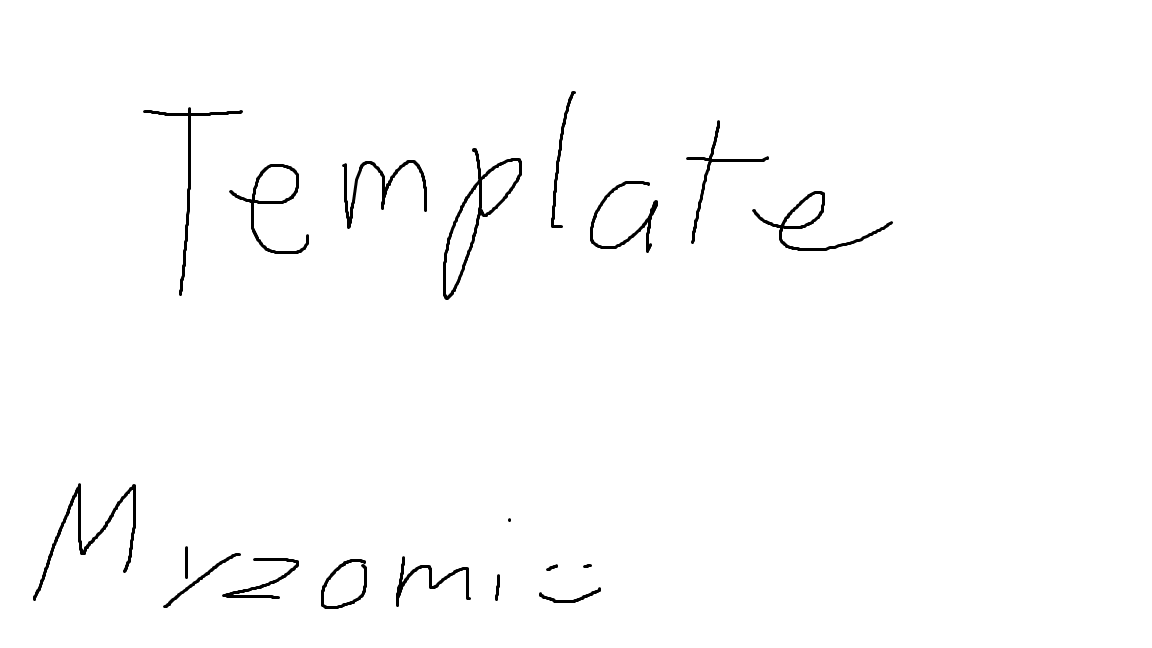 Template
Myzomi